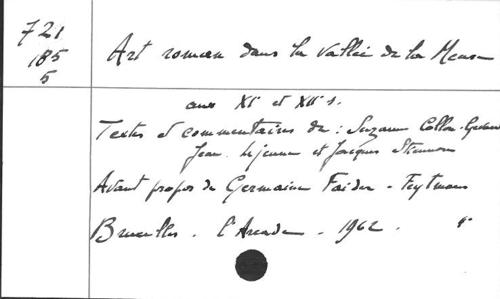 721
185
5
Art roman dans la vallée de la Meuse
aux XIe et XIIe s.
Textes et commentaires de : Suzanne Collon-Gevaert
Jean Lejeune et Jacques Stiennon
Avant propos de Germaine Faider - Feytmans
Bruxelles. l'Arcade. 1962.